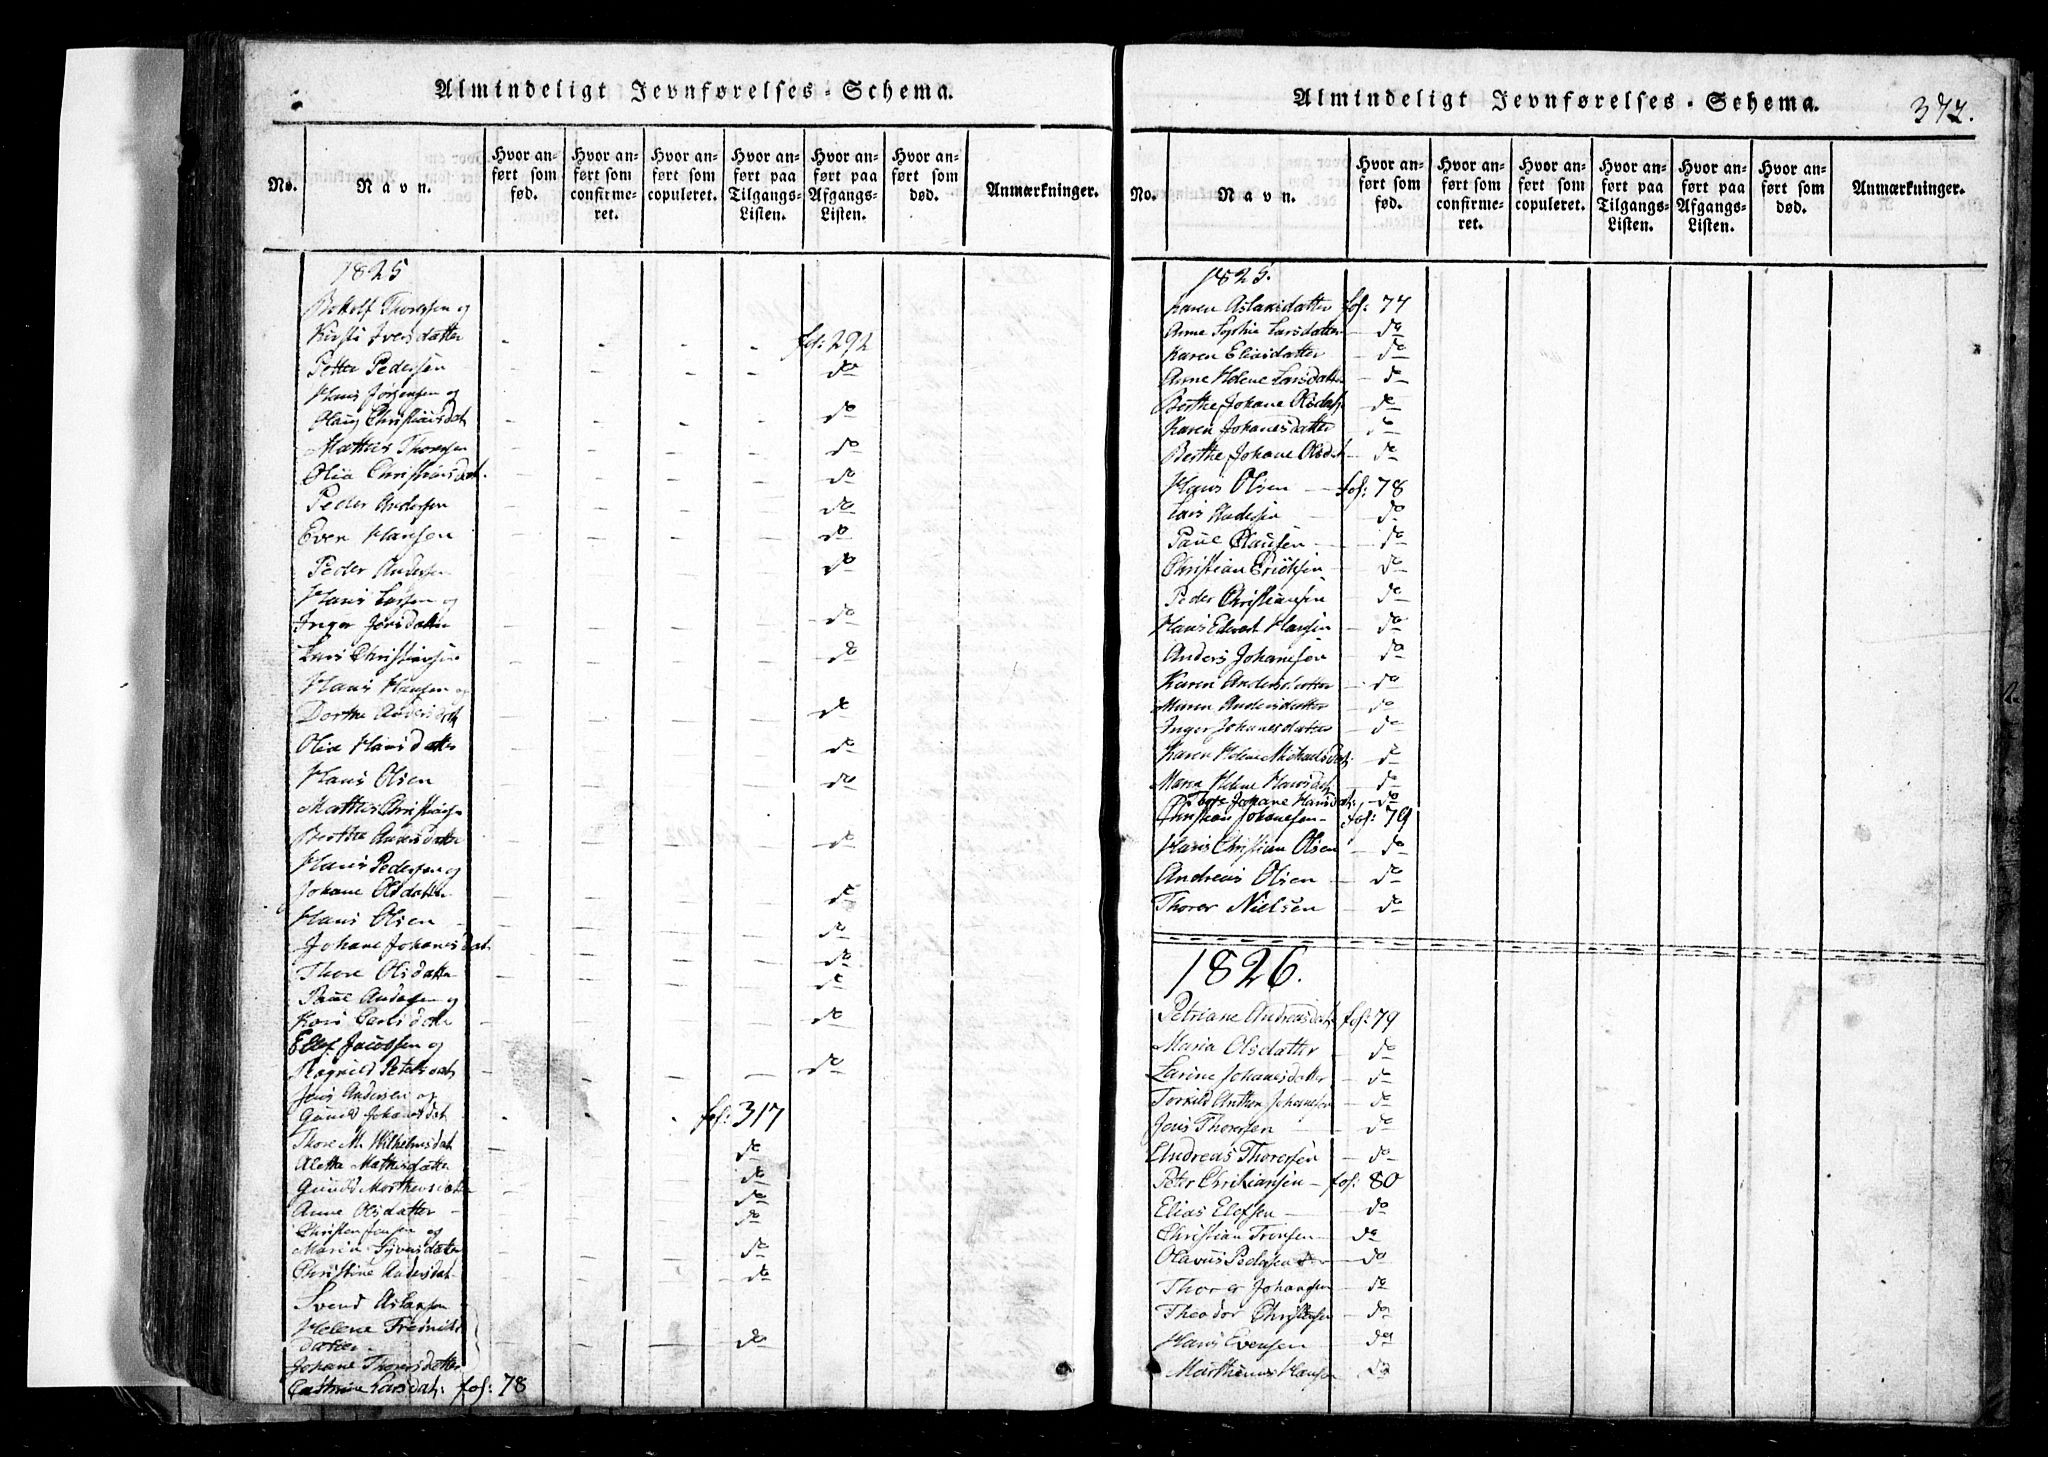 Almindeligt Jevnførelses-Schema.
No.
Navn.
Hvor anført som fød.
Hvor anført som confirmeret.
Hvor anført som copuleret.
Hvor anført paa Tilgangs-Listen.
Hvor anført paa Afgangs-Listen.
Hvor anført som død.
Anmærkninger.
1825
Thoressen og
Kirsti Iversdatter - - - - fol: 292
Petter Pedersen - - - - do
Hans Jørgensen og
Christiansdat - - - - do
Mathis Thoresen - - - - do
Olia Christiansdat. - - - do
Peder Andersen - - - - do
Even Hansen - - - - do
Peder Andersen - - - - do
Hans Larsen og
Inger Jensdatter - - - - do
Lars Christiansen - - - - do
Hans Hansen og
Dorthe Andersdat - - - - do
Olia Hansdatter - - - - do
Hans Olsen - - - - do
Mathis Christiansen
Berthe Andersdatter - - - - do
Hans Pedersen og
Johane Olsdatter - - - - do
Hans Olsen - - - - do
Johane Johanesdat - - - - do
Thore Olsdatter - - - - do
Paul Andersen og
Kari Carlsdatter - - - - do
Ellef Jacobsen og
Ragnild Petersdat - - - - do
Jens Andersen og
Gunild Johanesdat - - - fol: 317
Thore M. Wilhelmsdat - - - do
Aletta Mathisdatter - - - do
Gunild Morthensdatter - - - do
Anne Olsdatter - - - do
Christen Jensen og
Maria Syversdatter - - - do
Christine Andersdat - - - do
Svend Aslaksen
Helene
datter - - - do
Johane Thoresdatter
Cathrine Larsdat: fol: 78
Almindeligt Jevnførelses-Schema.
372.
No.
Navn.
Hvor anført som fød.
Hvor anført som confirmeret.
Hvor anført som copuleret.
Hvor anført paa Tilgangs-Listen.
Hvor anført paa Afgangs-Listen.
Hvor anført som død.
Anmærkninger.
1825.
Karen Aslaksdatter fol: 77
Anne Sophie Larsdatter - do
Karen Eliasdatter - do
Anne Helene Larsdatter - do
Berthe Johane Olsdat - do
Karen Johanesdatter - do
Berthe Johane Olsdat - do
Hans Olsen - fol: 78
Lars - do
Paul Clausen - do
Christian Ericksen - do
Peder Christiansen - do
Hans Edvart Hansen - do
Anders Johanesen - do
Karen Andersdatter - do
Maren Andersdatter - do
Inger Johanesdatter - do
Karen Helene Mikkelsdat: do
Maren Helene Hansdat - do
Johane Hansdat: - do
Christian Johanesen - fol: 79
Hans Christian Olsen do
Andreas Olsen - do
Thorer Nielsen - do
1826.
Petriane Andreasdat fol: 79
Maria Olsdatter - do
Larine Johanesdatter - do
Torkild Anthon Johanesen - do
Jens Thoresen - do
Andreas Thoresen - do
Peter Christiansen - fol: 80
Elias Elefsen - do
Christian Tronsen - do
Olavus Pedersen - do
Thorer Johanesen - do
Theodor Christensen - do
Hans Evensen - do
Marthinus Hansen - do